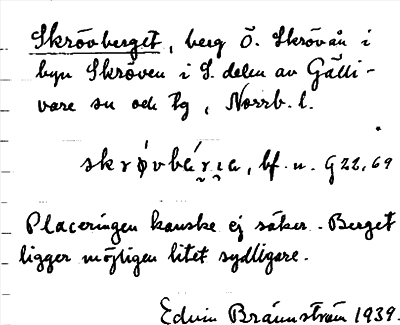 Skrövberget, berg Ö. Skrövån i
byn Skröven i S. delen av Gälli-
vare sn och tg, Norrb. l.
skrǿvbä́rıa, bf. n. G22,69
Placeringen kanske ej säker. Berget
ligger möjligen litet sydligare.
Edvin Brännström 1939.